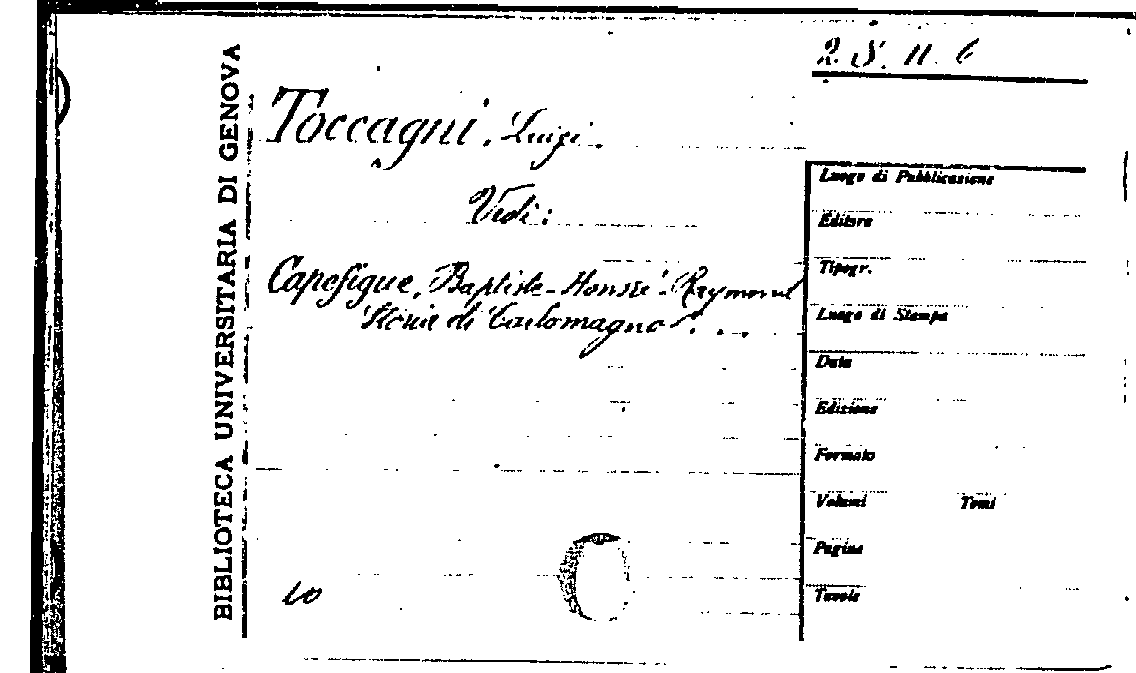 2. S. 11. 6
BIBLIOTECA UNIVERSITARIA DI GENOVA
Toccagni, Luigi.
Vedi:
Capefigue, Baptiste-Honoré-Raymond
Storia di Carlomagno. . .
10
Luogo di Pubblicazione
Editore
Tipogr.
Luogo di Stampa
Data
Edizione
Formato
Volumi Tomi
Pagine
Tavole